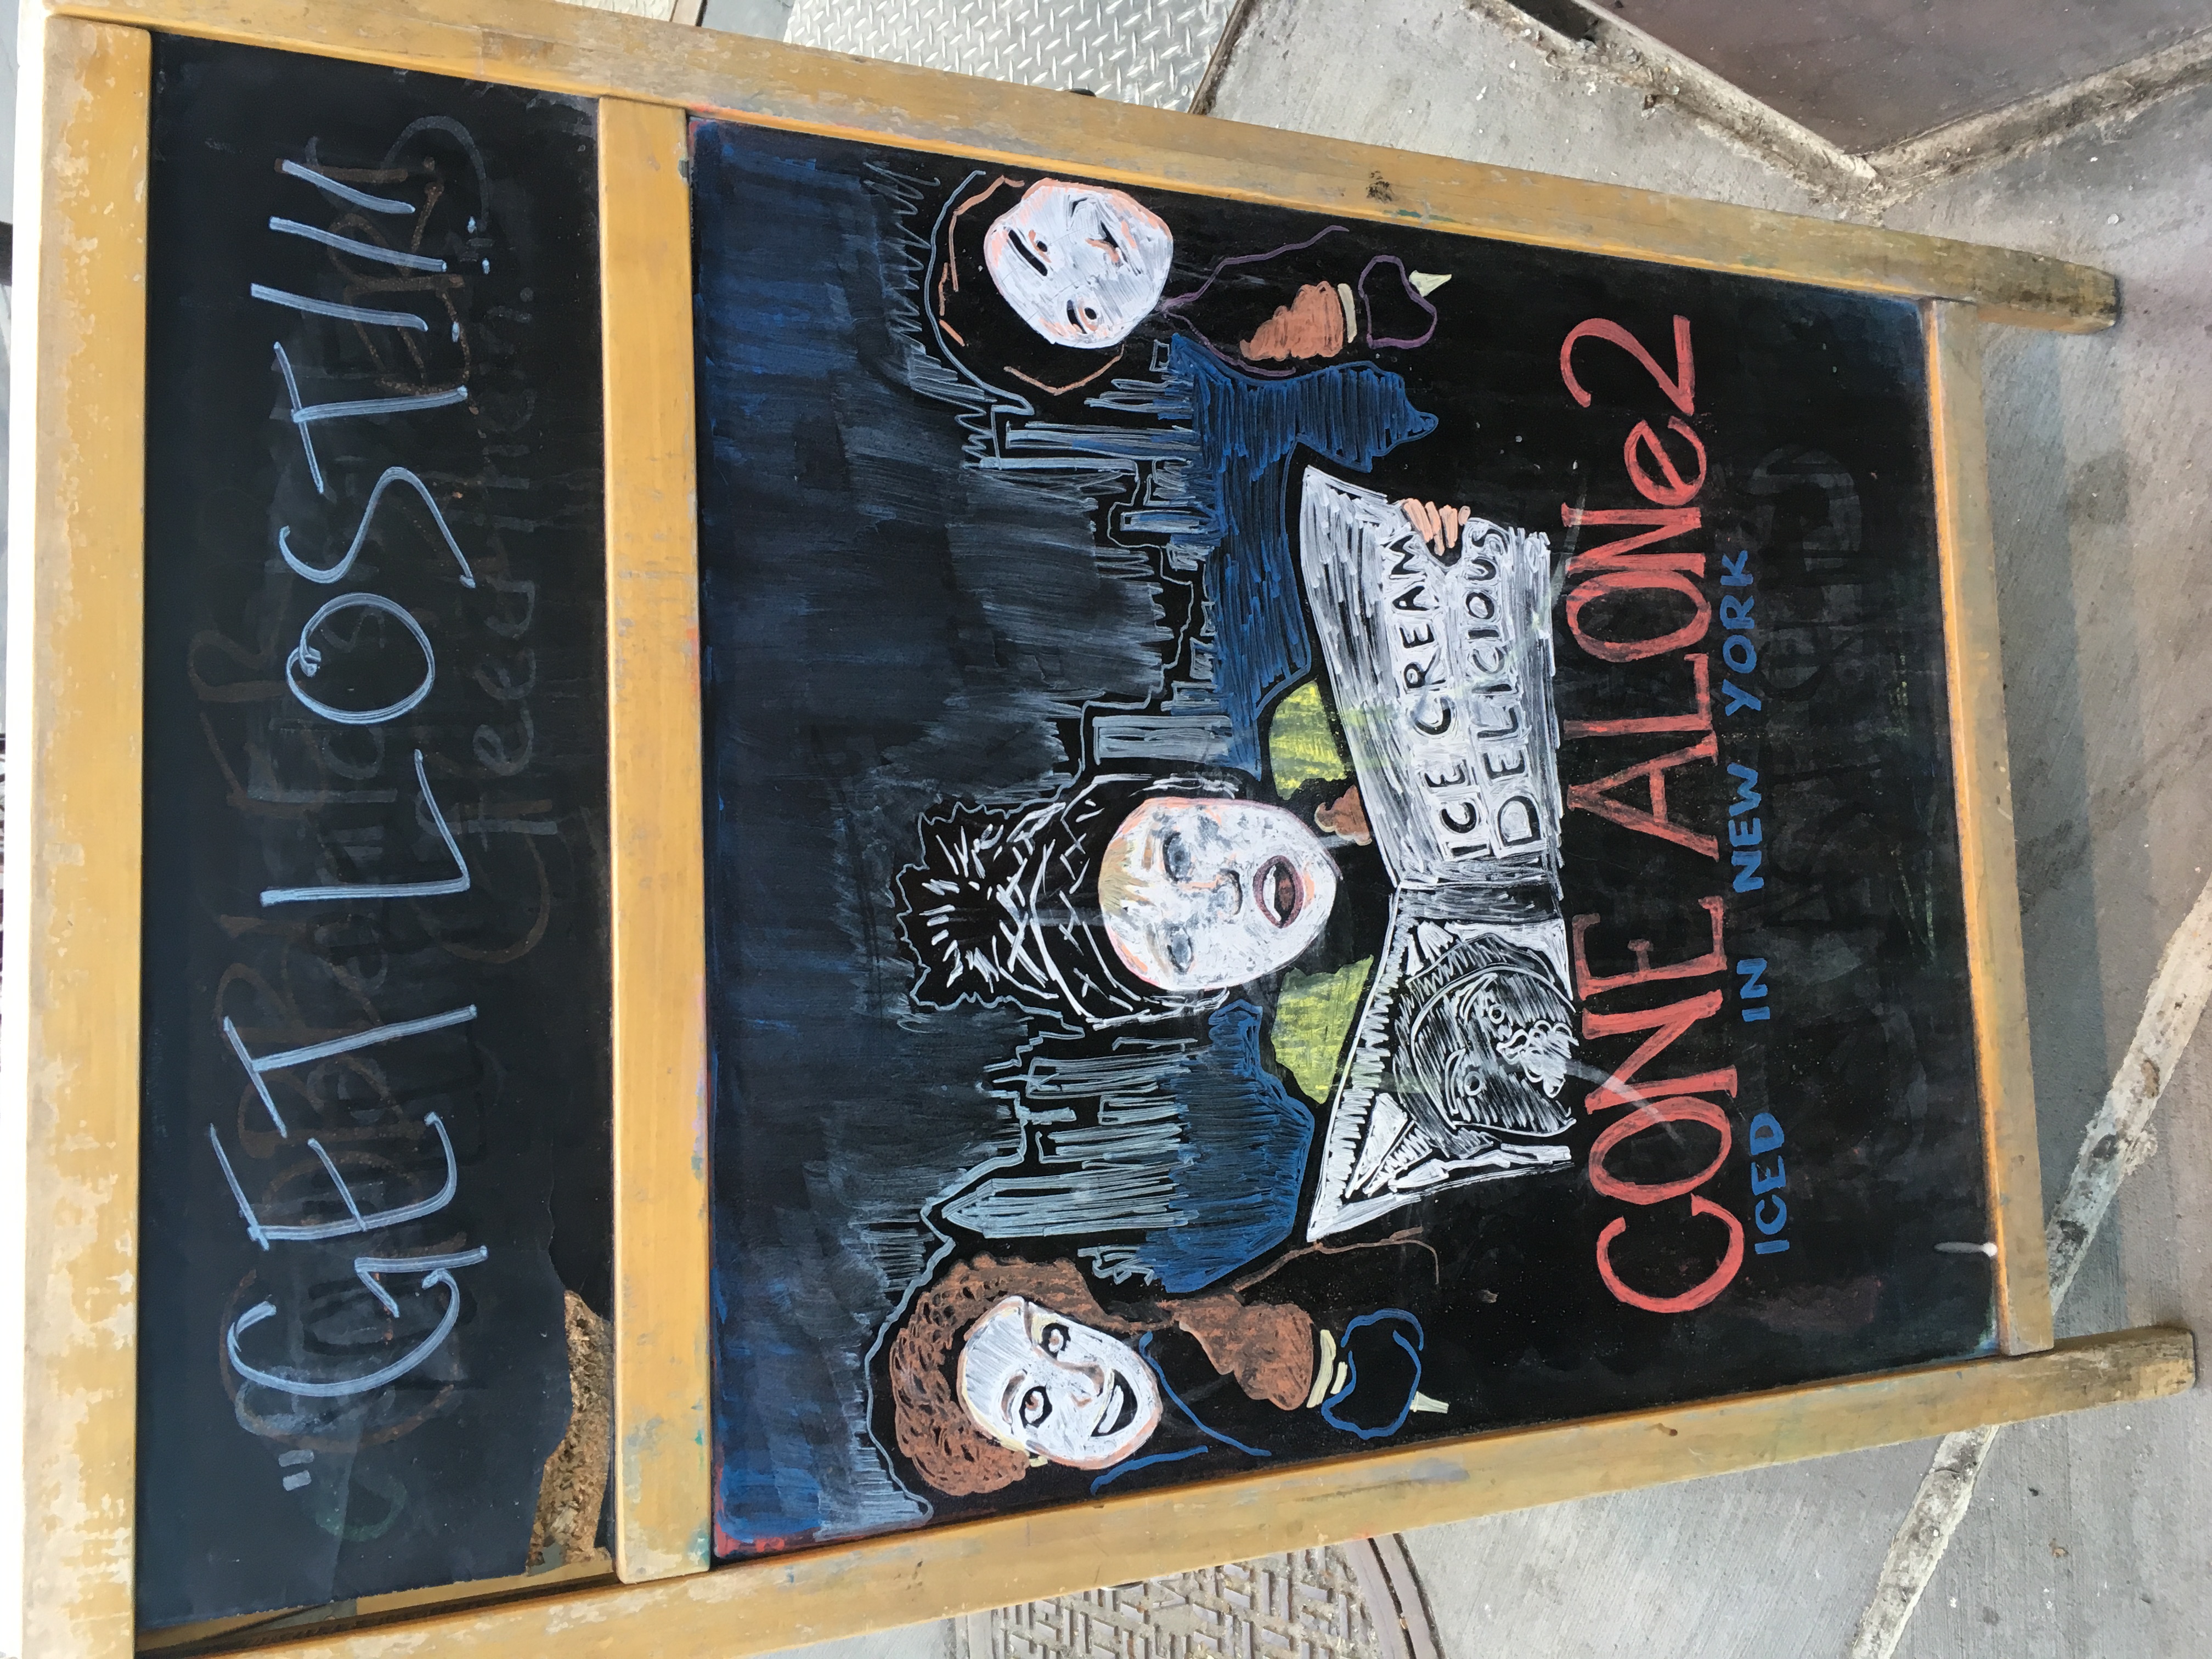 "GET LOST!!!"
ICE CREAM
DELICIOUS
CONE ALONe 2
ICED IN NEW YORK